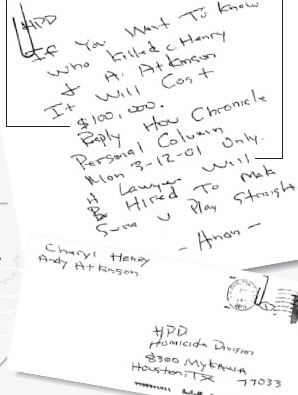 HPD
If You Want To Know
Who killed C. Henry
& A. Atkinson
It Will Cost
$100,000.
Reply Hou Chronicle
Personal Column
Mon 3-12-01 Only.
A Lawyer Will
Be Hired To Make
Sure U Play Straight
- Anon -
Cheryl Henry
Andy Atkinson
HPD
Homicide Division
8300 Mykawa
Houston, TX 77033